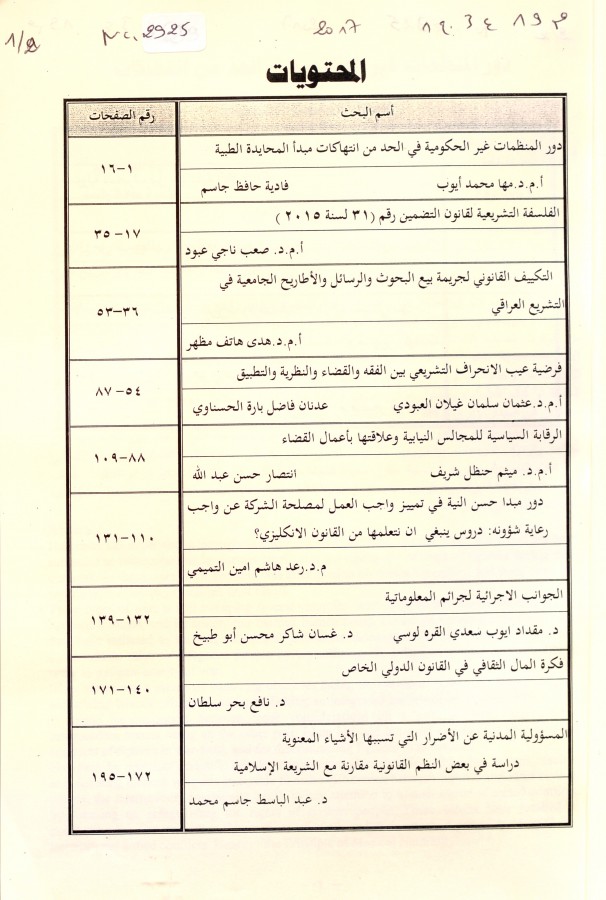 1/2 No. 2925 2017 م ١٩ ع ٣ ١٩
المحتويات
أسم البحث رقم الصفحات
دور المنظمات غير الحكومية في الحد من انتهاكات مبدأ المحايدة الطبية
أ.م.د.مها محمد أيوب فادية حافظ جاسم
١-١٦
الفلسفة التشريعية لقانون التضمين رقم (٣١ لسنة ٢٠١٥ )
أ.م.د. صعب ناجي عبود
١٧-٣٥
التكييف القانوني لجريمة بيع البحوث والرسائل والأطاريح الجامعية في
التشريع العراقي
أ.م.د.هدى هاتف مظهر
٣٦-٥٣
فرضية عيب الانحراف التشريعي بين الفقه والقضاء والنظرية والتطبيق
أ.م.د.عثمان سلمان غيلان العبودي عدنان فاضل بارة الحسناوي
٥٤-٨٧
الرقابة السياسية للمجالس النيابية وعلاقتها بأعمال القضاء
أ.م.د. ميثم حنظل شريف انتصار حسن عبد الله
٨٨-١٠٩
دور مبدا حسن النية في تمييز واجب العمل لمصلحة الشركة عن واجب
رعاية شؤونه: دروس ينبغي ان نتعلمها من القانون الانكليزي؟
م.د.رعد هاشم امين التميمي
١١٠-١٣١
الجوانب الاجرائية لجرائم المعلوماتية
د. مقداد ايوب سعدي القره لوسي د. غسان شاكر محسن أبو طبيخ
١٣٢-١٣٩
فكرة المال الثقافي في القانون الدولي الخاص
د. نافع بحر سلطان
١٤٠-١٧١
المسؤولية المدنية عن الأضرار التي تسببها الأشياء المعنوية
دراسة في بعض النظم القانونية مقارنة مع الشريعة الإسلامية
د. عبد الباسط جاسم محمد
١٧٢-١٩٥